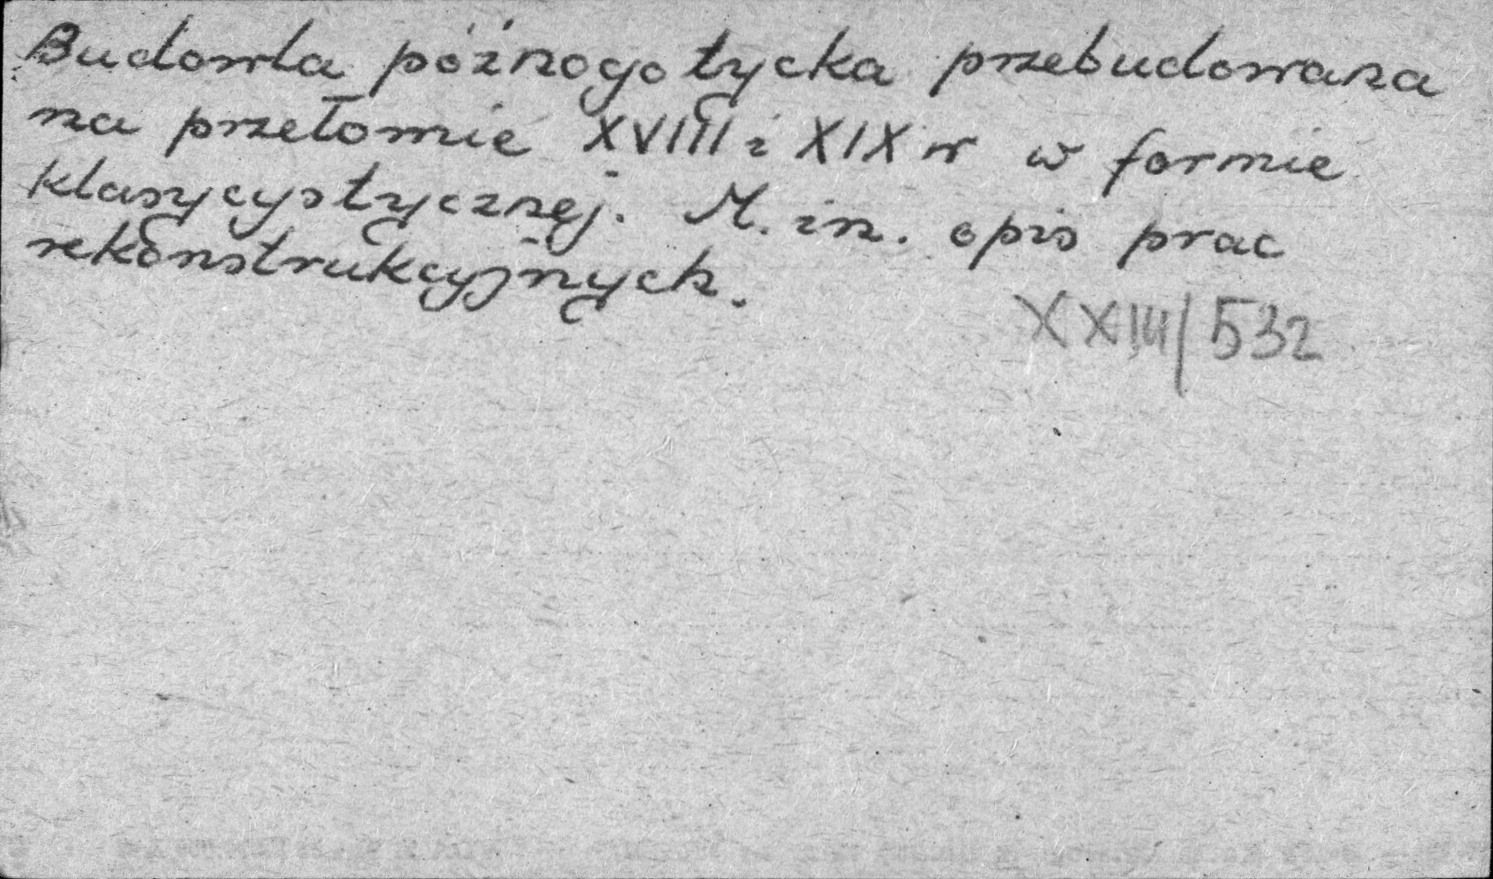 Budowla późnogotycka przebudowana
na przełomie XVIII i XIX w w formie
klasycystycznej. M. in. opis prac
rekonstrukcyjnych.
XXIII/532